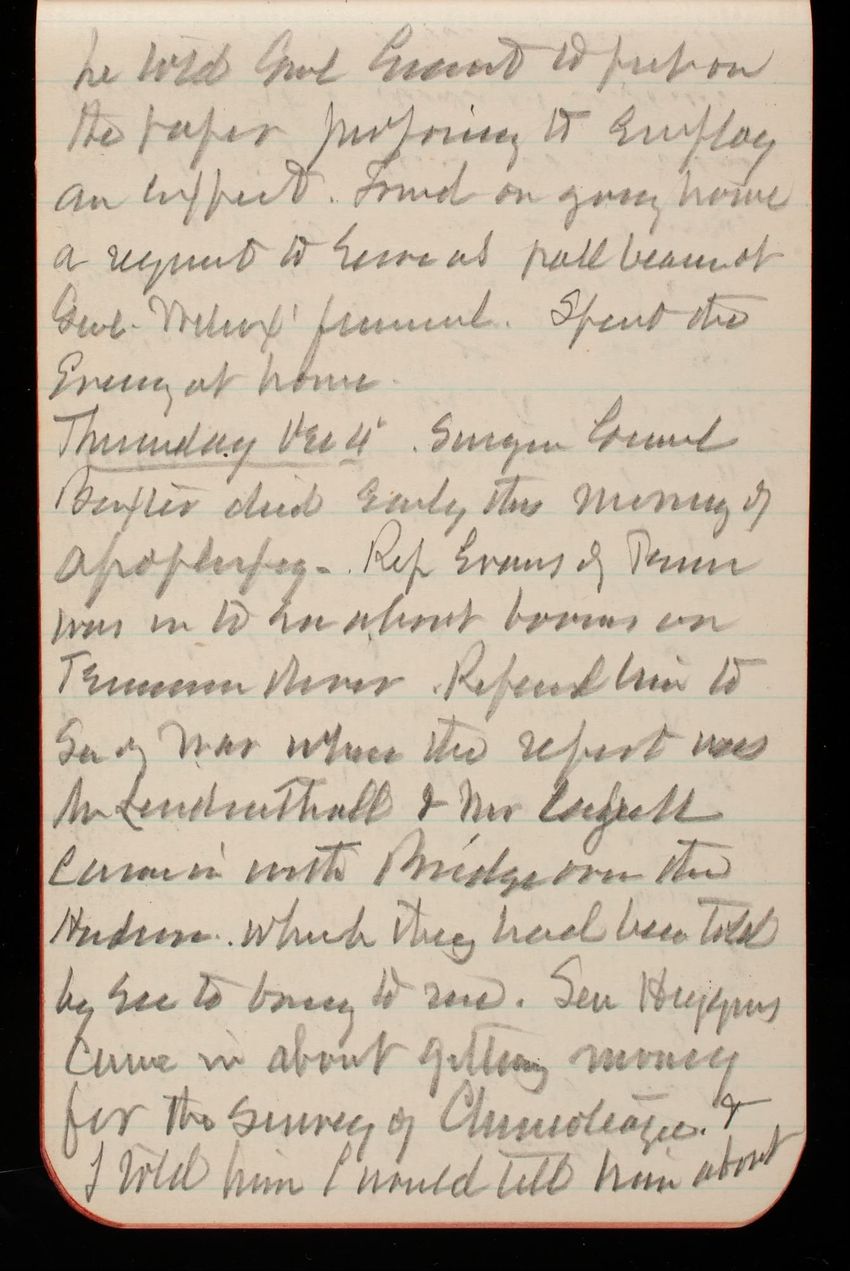 he told Genl Grant to put on
the paper proposing to employ
an expert. Found on going home
a request to serve as pall bearer at
Genl. Wilcox' funeral. Spent the
Evening at home.
Thursday Dec 4. Surgeon Genl
Baxter died early this morning of
apoplexy. Rep Evans of Tenn
was in to see about booms on
Tennessee River. Referred him to
Sec of War where the report was
Mr Lindenthall & Mr
Came in with Bridge over the
Hudson. which they had been told
by Sec to bring to me. Sen Higgins
came in about getting money
for the survey of &
I told him I would tell him about